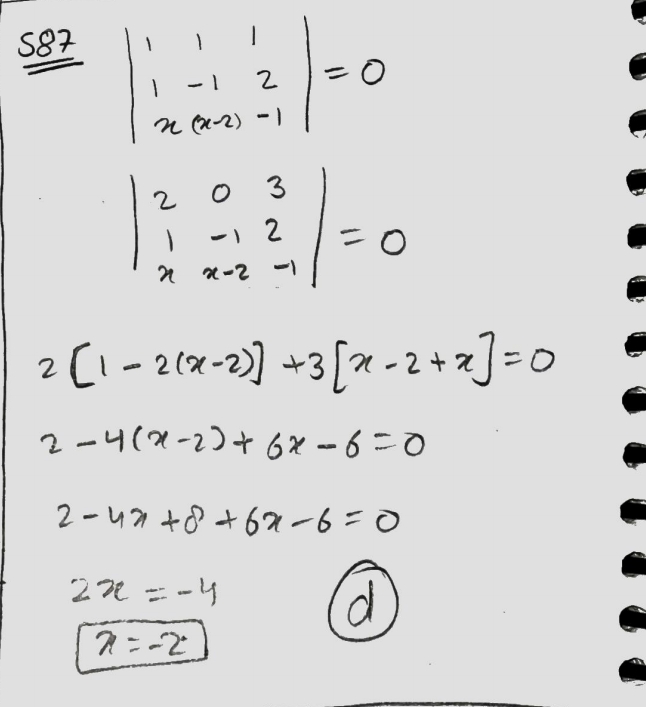 S87
| 1 1 1 |
| 1 -1 2 | = 0
| x (x-2) -1 |
| 2 0 3 |
| 1 -1 2 | = 0
| x x-2 -1 |
2[1-2(x-2)] +3[x-2+x]=0
2-4(x-2)+6x-6=0
2-4x+8+6x-6=0
2x=-4
x=-2
d